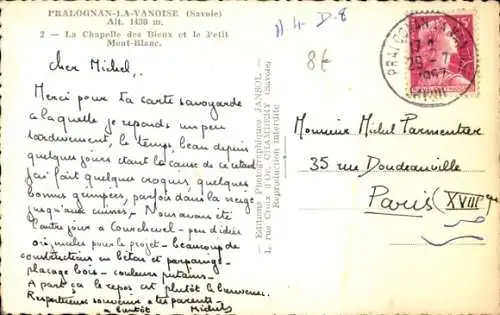 PRALOGNAN-LA-VANOISE (Savoie)
Alt. 1430 m.
2 - La Chapelle des Bieux et le Petit
Mont-Blanc.
A 4 D.8
8€
Cher Michel,
Merci pour ta carte savoyarde
a laquelle je reponds un peu
tardivement, le temps, beau depuis
quelques jours etant la cause de ce retard
j'ai fait quelques croquis, quelques
bonnes grimpées, parfois dans la neige
jusqu'aux cuisses - Nous avons été
l'autre jour a Courchevel - peu d'idées
originales pour le projet - beaucoup de
constructions en béton et parpaings -
placage bois - couleurs
A part ça le repos est plutôt le bienvenu.
Respectueux souvenirs a tes parents -
a bientôt Michel
— Editions Photographiques JANSOL —
1, rue Croix d'Or, CHAMBERY (Savoie)
Reproduction interdite
PRALOGNAN
29 - 7
1957
SAVOIE
Monsieur Michel Parmentier
35 rue Doudeauville
Paris (XVIIIe)